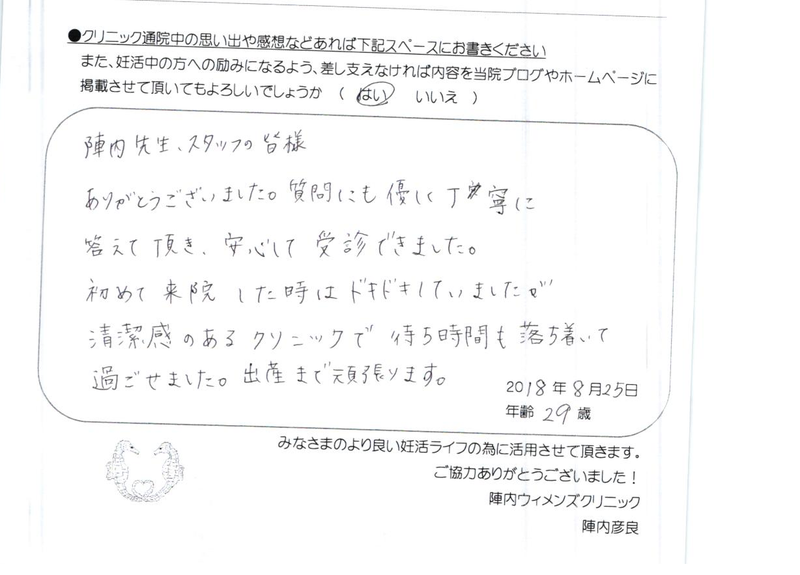 ●クリニック通院中の思い出や感想などあれば下記スペースにお書きください
また、妊活中の方への励みになるよう、差し支えなければ内容を当院ブログやホームページに
掲載させて頂いてもよろしいでしょうか ( はい いいえ )
陣内先生、スタッフの皆様
ありがとうございました。質問にも優しく丁寧に
答えて頂き、安心して受診できました。
初めて来院した時はドキドキしていましたが
清潔感のあるクリニックで待ち時間も落ち着いて
過ごせました。出産まで頑張ります。
2018年8月25日
年齢 29 歳
みなさまのより良い妊活ライフの為に活用させて頂きます。
ご協力ありがとうございました！
陣内ウィメンズクリニック
陣内彦良